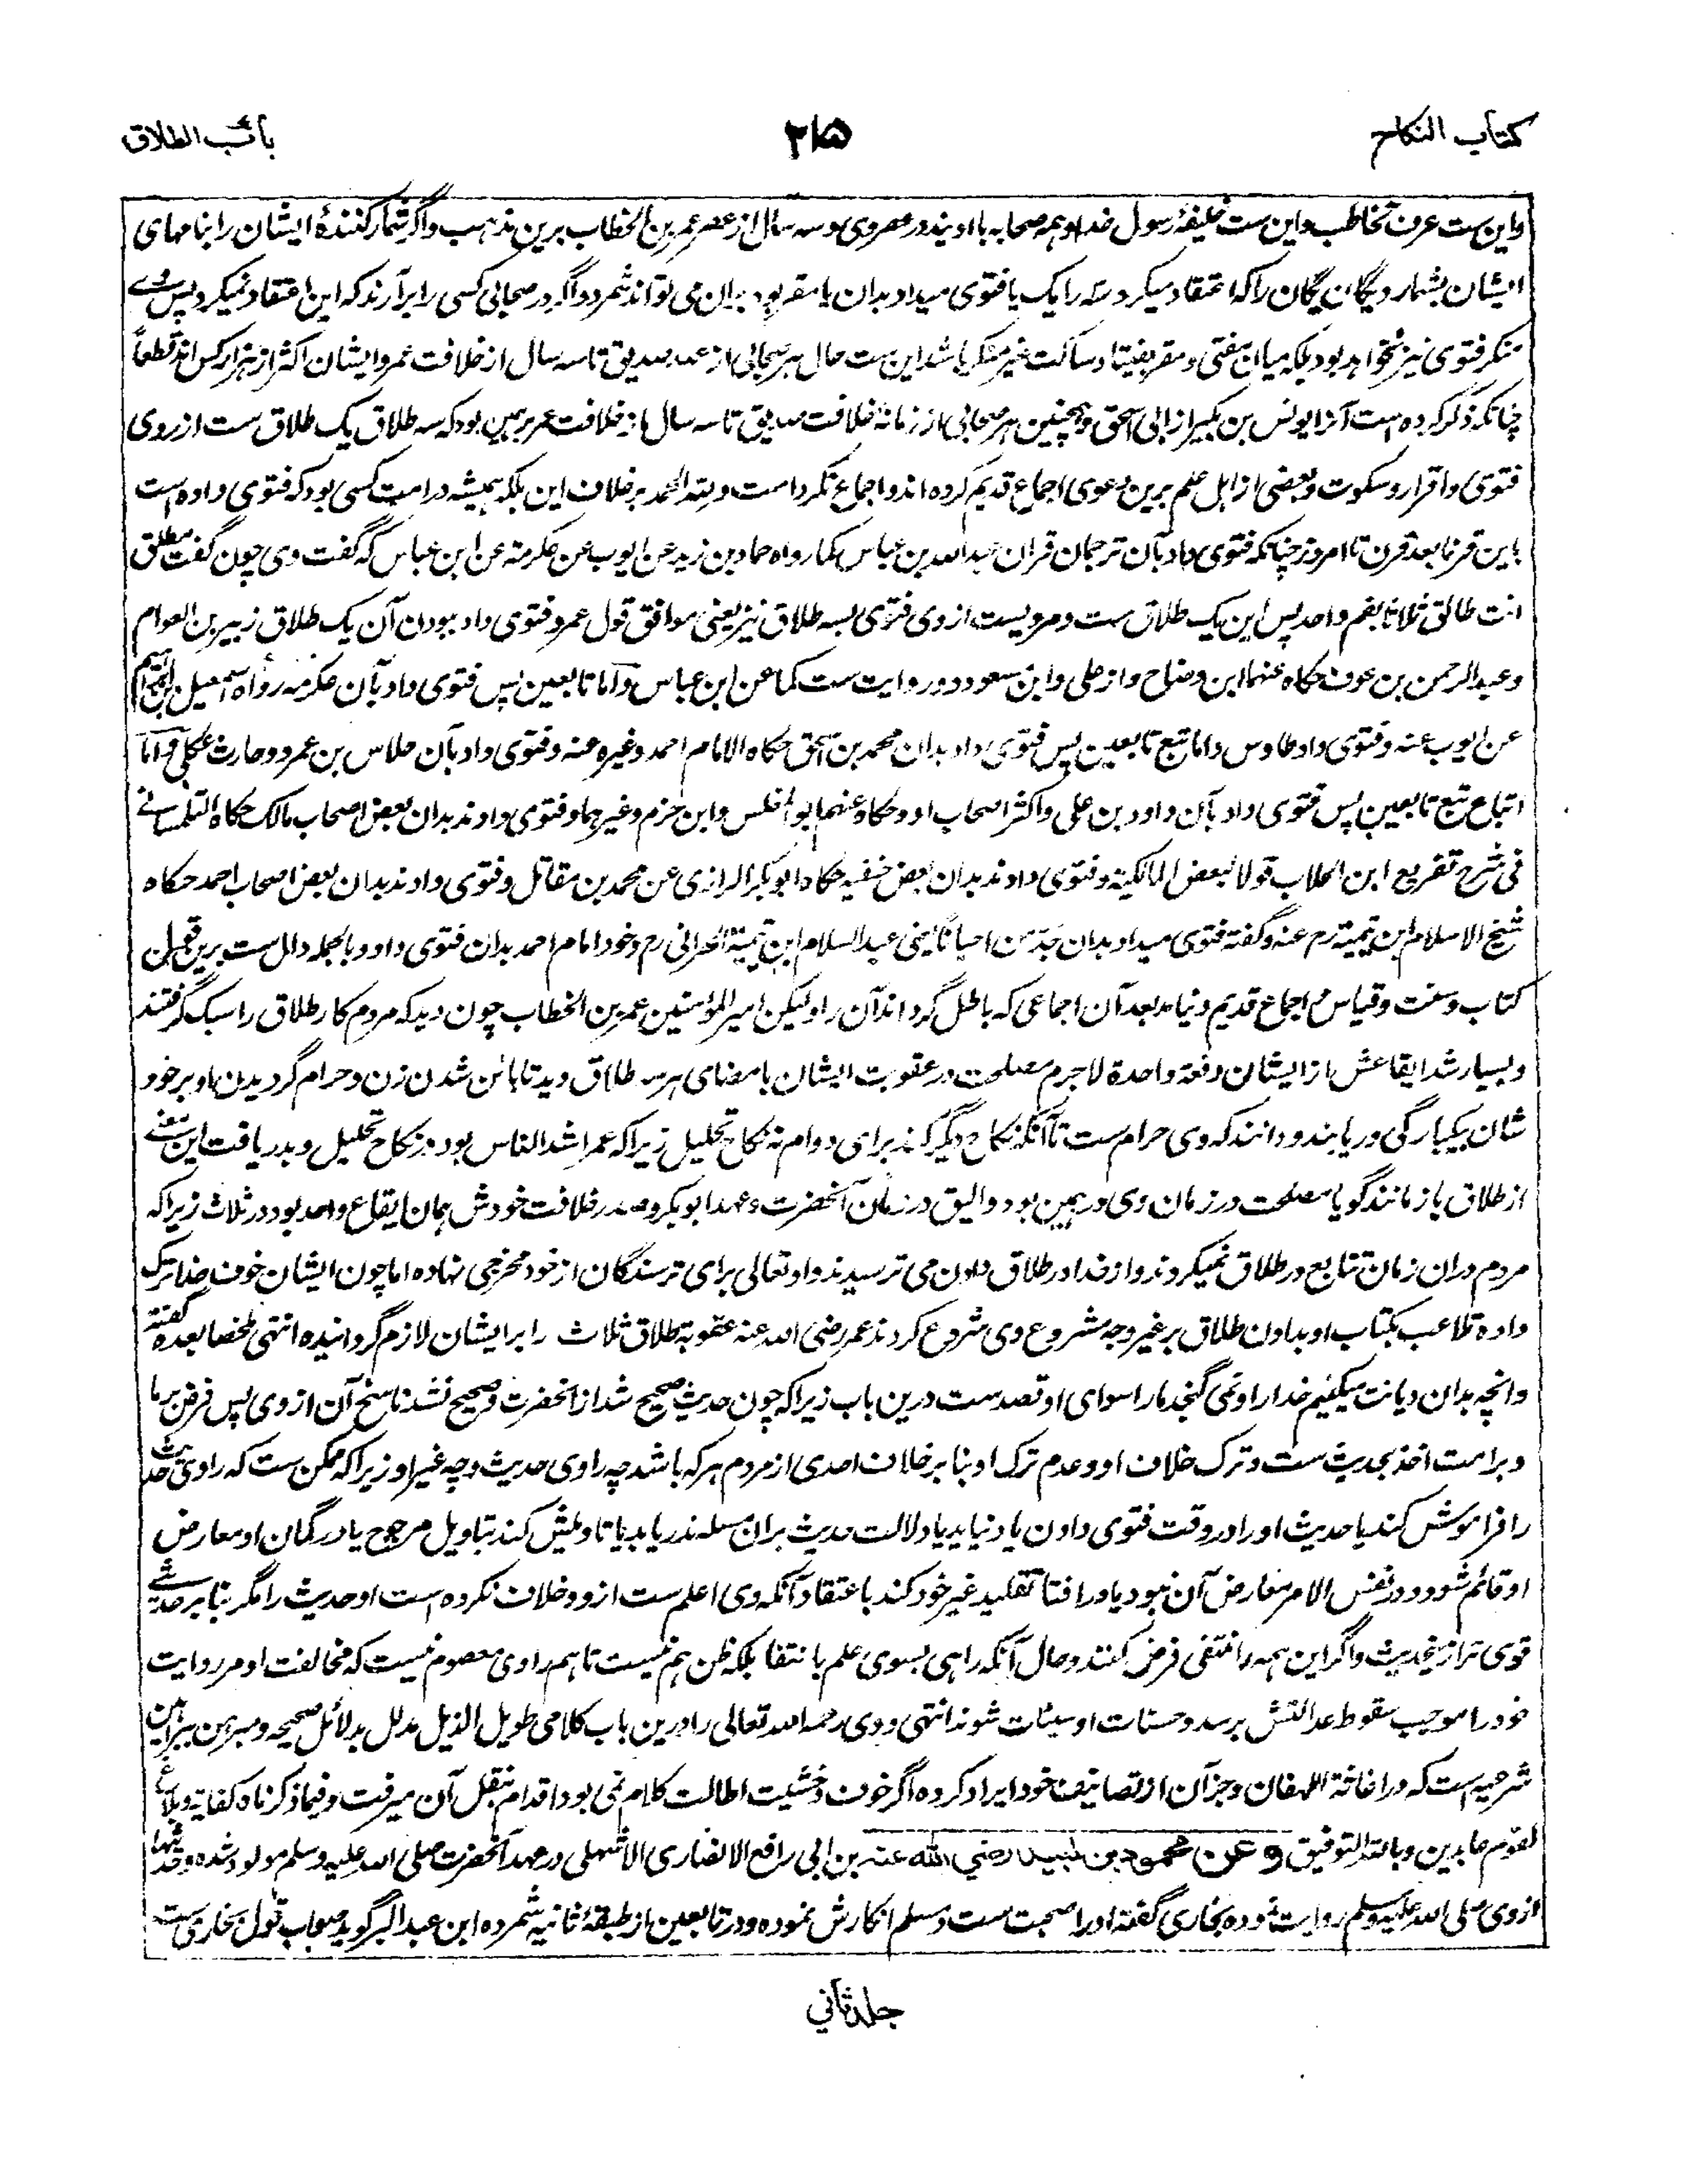 کتاب النکاح
۲۱۵
باب الطلاق
واین ست عرف تخاطب واین ست خلیفهٔ رسول خدا و همه صحابه با او یند در عصر وی و سه سال از عصر عمر بن الخطاب برین مذهب واگر شمار کنندهٔ ایشان را بنامهای
ایشان بشمارد یگان یگان را که اعتقاد میکرد سه را یک یا فتوی میداد بدان یا مقر بود بران می تواند شمرد و اگر در صحابی کسی را برآرند که این اعتقاد نمیکرد پس وے
منکر فتوی نیز نخواهد بود بلکه میان مفتی و مقر بفتیا و ساکت غیر منکر باشد این ست حال هر صحابی از عهد صدیق تا سه سال از خلافت عمر و ایشان اکثر از هزار کس اند قطعاً
چنانکه ذکر کرده است آنرا یونس بن بکیر از ابی اسحق و همچنین هر صحابی از زمانهٔ خلافت صدیق تا سه سال از خلافت عمر برین بود که سه طلاق یک طلاق ست از روی
فتوی و اقرار و سکوت و بعضی از اهل علم برین دعوی اجماع قدیم کرده اند و اجماع نکرد امت ولله الحمد بر خلاف این بلکه همیشه در امت کسی بود که فتوی داده است
باین قرنا بعد قرن تا امروز چنانکه فتوی داد بآن ترجمان قران عبدالله بن عباس کما رواه حماد بن زید عن ایوب عن عکرمة عن ابن عباس که گفت وی چون گفت مطلق
انت طالق ثلاثا بفم واحد پس این یک طلاق ست و مرویست از وی فتوی بسه طلاق نیز یعنی موافق قول عمر و فتوی داد ببودن آن یک طلاق زبیر بن العوام
و عبدالرحمن بن عوف حکاه عنهما ابن وضاح و از علی و ابن مسعود دو روایت ست کما عن ابن عباس واما تابعین پس فتوی داد بآن عکرمه رواه اسمعیل بن ابراهیم
عن ایوب عنه و فتوی داد طاوس واما تبع تابعین پس فتوی داد بدان محمد بن اسحق حکاه الامام احمد وغیره عنه و فتوی داد بآن خلاس بن عمرو و حارث عکلی واما
اتباع تبع تابعین پس فتوی داد بآن داود بن علی و اکثر اصحاب او و حکاه عنهم ابو المغلس وابن حزم وغیرهما و فتوی دادند بدان بعض اصحاب مالک حکاه التلمسانے
فی شرح تفریع ابن الجلاب قولا لبعض المالکیة و فتوی دادند بدان بعض حنفیه حکاه ابوبکر الرازی عن محمد بن مقاتل و فتوی دادند بدان بعض اصحاب احمد حکاه
شیخ الاسلام ابن تیمیة رح عنه و گفته فتوی میداد بدان جد من احیانا یعنی عبد السلام ابن تیمیة الحرانی رح و خود امام احمد بدان فتوی داد و بالجمله دال ست برین قول
کتاب و سنت و قیاس و اجماع قدیم و نیامد بعد آن اجماعی که باطل گرداند آن را و لیکن امیر المؤمنین عمر بن الخطاب چون دید که مردم کار طلاق را سبک گرفتند
و بسیار شد ایقاعش از ایشان دفعة واحدة لاجرم مصلحت در عقوبت ایشان بامضای هر سه طلاق دید تا بائن شدن زن و حرام گردیدن او بر خود
شان بیکبارگی دریابند و دانند که وی حرام ست تا آنکه نکاح دیگر کند برای دوام نه نکاح تحلیل زیرا که عمر اشد الناس بود در نکاح تحلیل و بدریافت این معنے
از طلاق باز مانند گویا مصلحت در زمان وی در همین بود و الیق در زمان آنحضرت و عهد ابوبکر و صدر خلافت خودش همان ایقاع واحد بود در ثلاث زیرا که
مردم دران زمان تتابع در طلاق نمیکردند و از خدا در طلاق دادن می ترسیدند و او تعالی برای ترسندگان از خود مخرجی نهاده اما چون ایشان خوف خدا ترک
داده تلاعب بکتاب او بدادن طلاق بر غیر وجه مشروع وی شروع کردند عمر رضی الله عنه عقوبة طلاق ثلاث را بر ایشان لازم گردانیده انتهی ملخصا بعده گفته
وانچه بدان دیانت میکنیم خدا را و نمی گنجد ما را سوای او قصد ست درین باب زیرا که چون حدیث صحیح شد از آنحضرت و صحیح نشد ناسخ آن از وی پس فرض بر ما
و بر امت اخذ بحدیث ست و ترک خلاف او و عدم ترک او بنا بر خلاف احدی از مردم هر که باشد چه راوی حدیث و چه غیر او زیرا که ممکن ست که راوی حدیث
را فراموش کند یا حدیث او را در وقت فتوی دادن یاد نیاید یا دلالت حدیث بران مسئله ندریابد یا تاویلش کند بتاویل مرجوح یا در گمان او معارض
او قائم شود و در نفس الامر معارض آن نبود یا در افتا تقلید غیر خود کند باعتقاد آنکه وی اعلم ست ازو و خلاف نکرده است او حدیث را مگر بنا بر حدیثے
قوی تر ازینحدیث و اگر این همه را منتفی فرض کنند و حال آنکه راهی بسوی علم بانتفا بلکه ظن هم نیست تا هم راوی معصوم نیست که مخالفت او مر روایت
خود را موجب سقوط عدالتش برسد و حسنات او سیئات شوند انتهی و وی رحمه الله تعالی را درین باب کلامی طویل الذیل مدلل بدلائل صحیحه و مبرهن ببراهین
شرعیه است که در اغاثة اللهفان و جز آن از تصانیف خود ایراد کرده اگر خوف و خشیت اطالت کلام نمی بود اقدام بنقل آن میرفت و فیما ذکرناه کفایة و بلاغ
لقوم عابدین و بالله التوفیق وعن محمود بن لبید رضي الله عنه بن ابی رافع الانصاری الاشهلی در عهد آنحضرت صلی الله علیه وسلم مولود شده و حدیثها
از وی صلی الله علیه وسلم روایت نموده بخاری گفته او را صحبت ست و مسلم انکارش نموده و در تابعین از طبقهٔ ثانیه شمرده ابن عبد البر گوید صواب قول بخاری ست
جلد ثاني